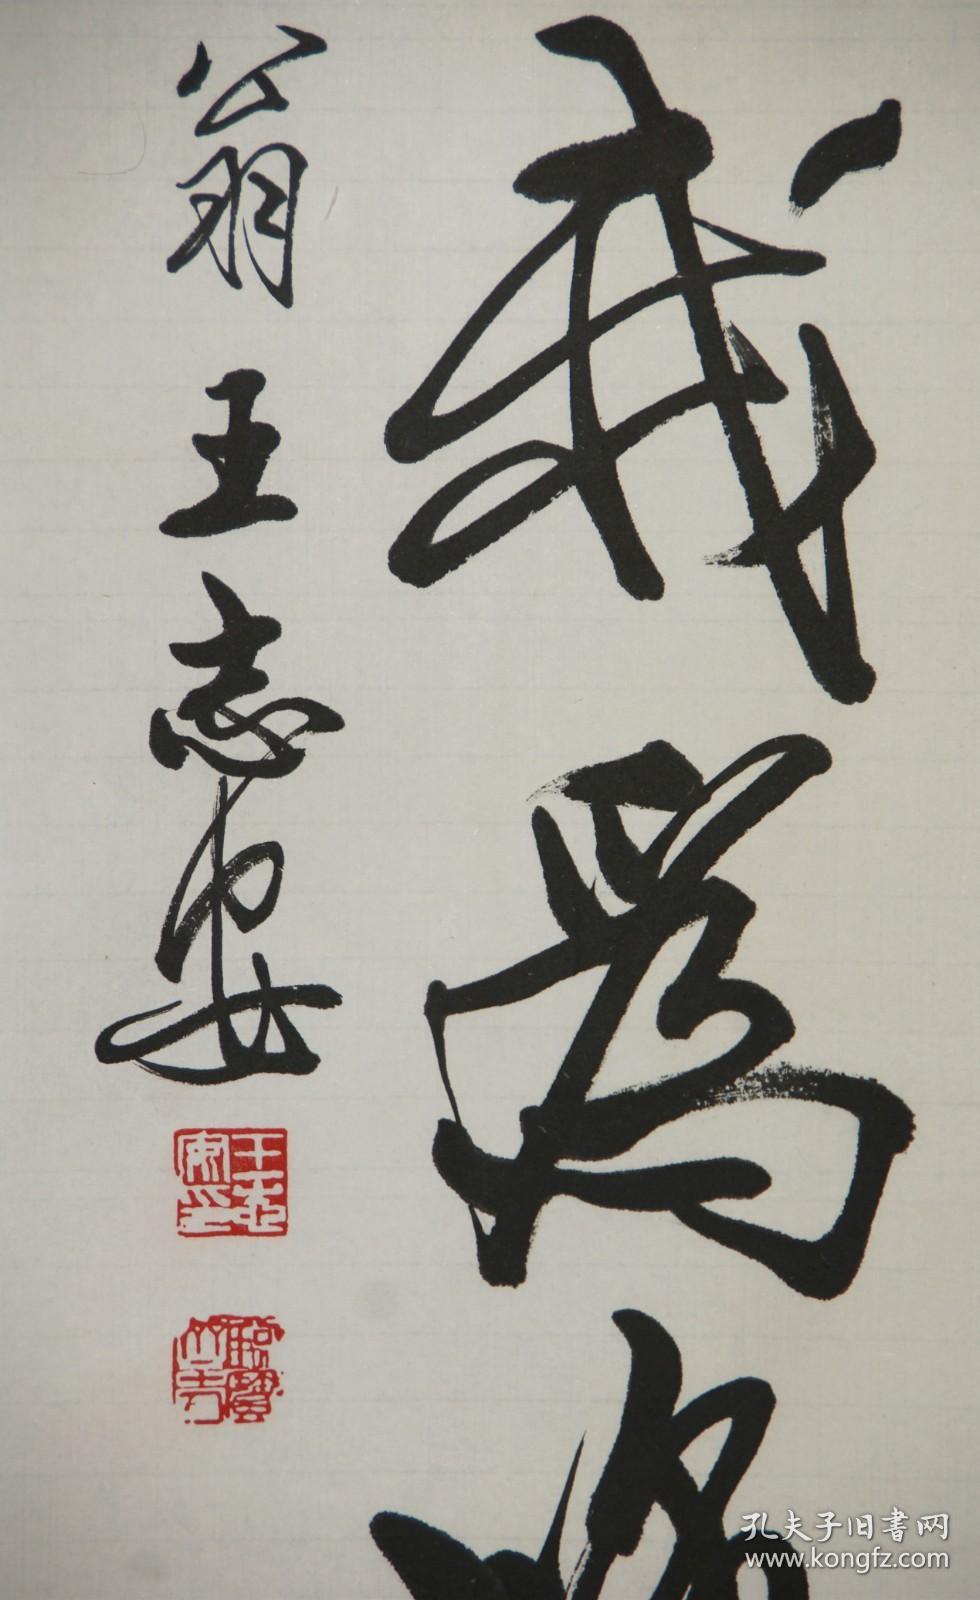 我為
翁王志安
王志安印
孔夫子旧書网
www.kongfz.com